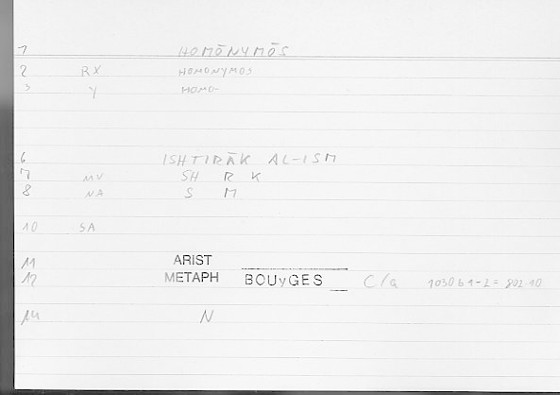 1 HOMŌNYMŌS
2 RX HOMONYMOS
3 Y HOMO-
6 ISHTIRĀK AL-ISM
7 MV SH R K
8 NA S M
10 SA
11 ARIST
12 METAPH BOUyGES C/a 1030b1-2= 802.10
14 N